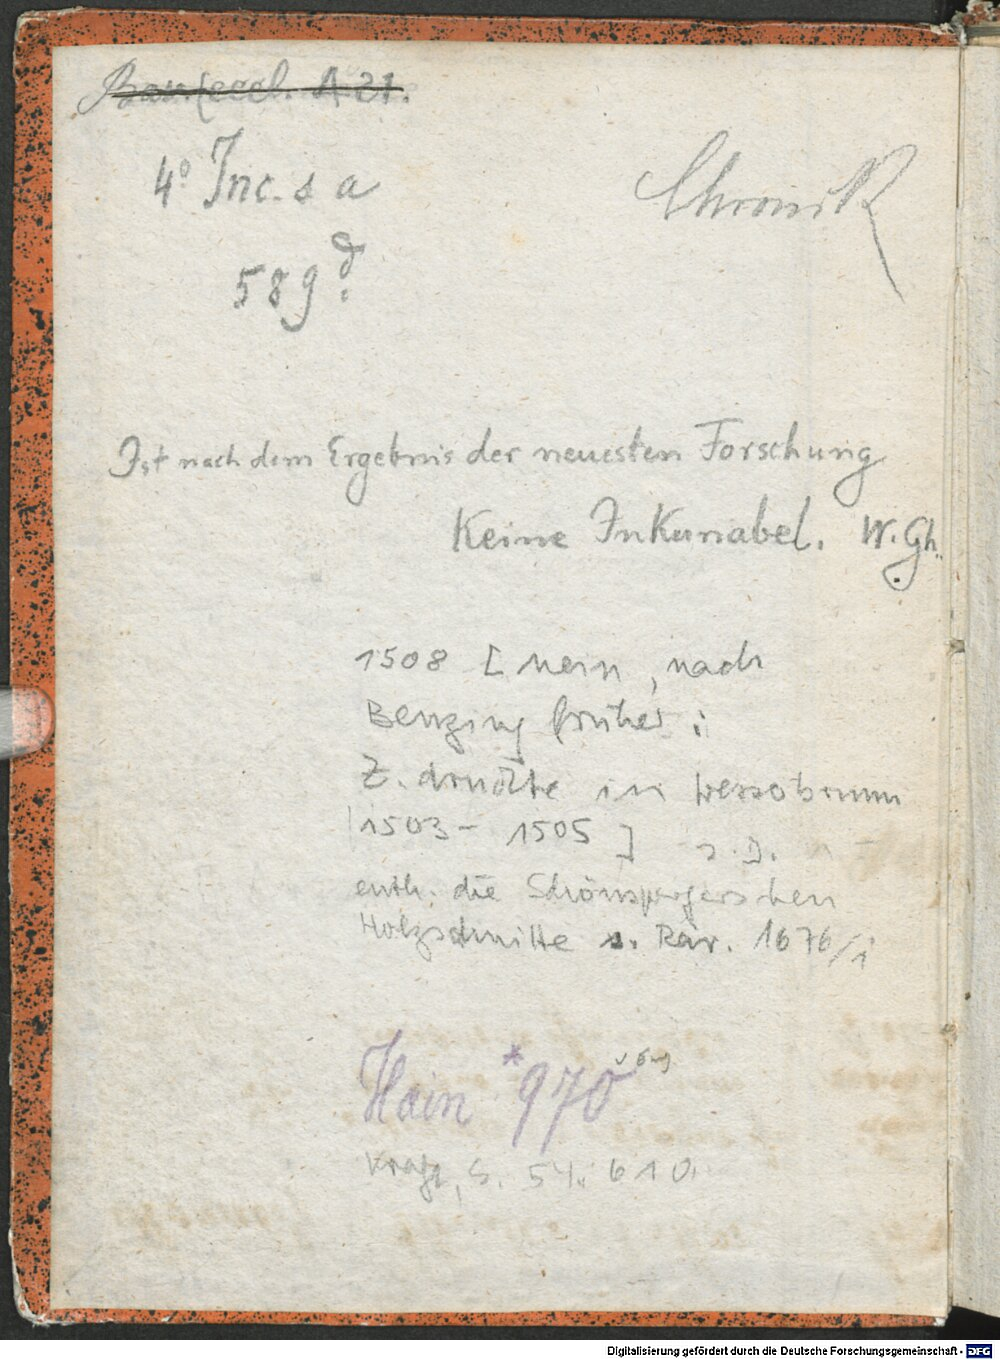 Bav. eccl. A 21.
4° Inc. s a
589 d
Chronik
Ist nach dem Ergebnis der neuesten Forschung
Keine Inkunabel. W. Gh.
1508 [ nein, nach
Benzing früher:
Z. druckte in Wessobrunn
1503 - 1505 ]
enth. die Schönspergerschen
Holzschnitte s. Rar. 1676/1
Hain *970
S. 54. 610.
Digitalisierung gefördert durch die Deutsche Forschungsgemeinschaft - DFG